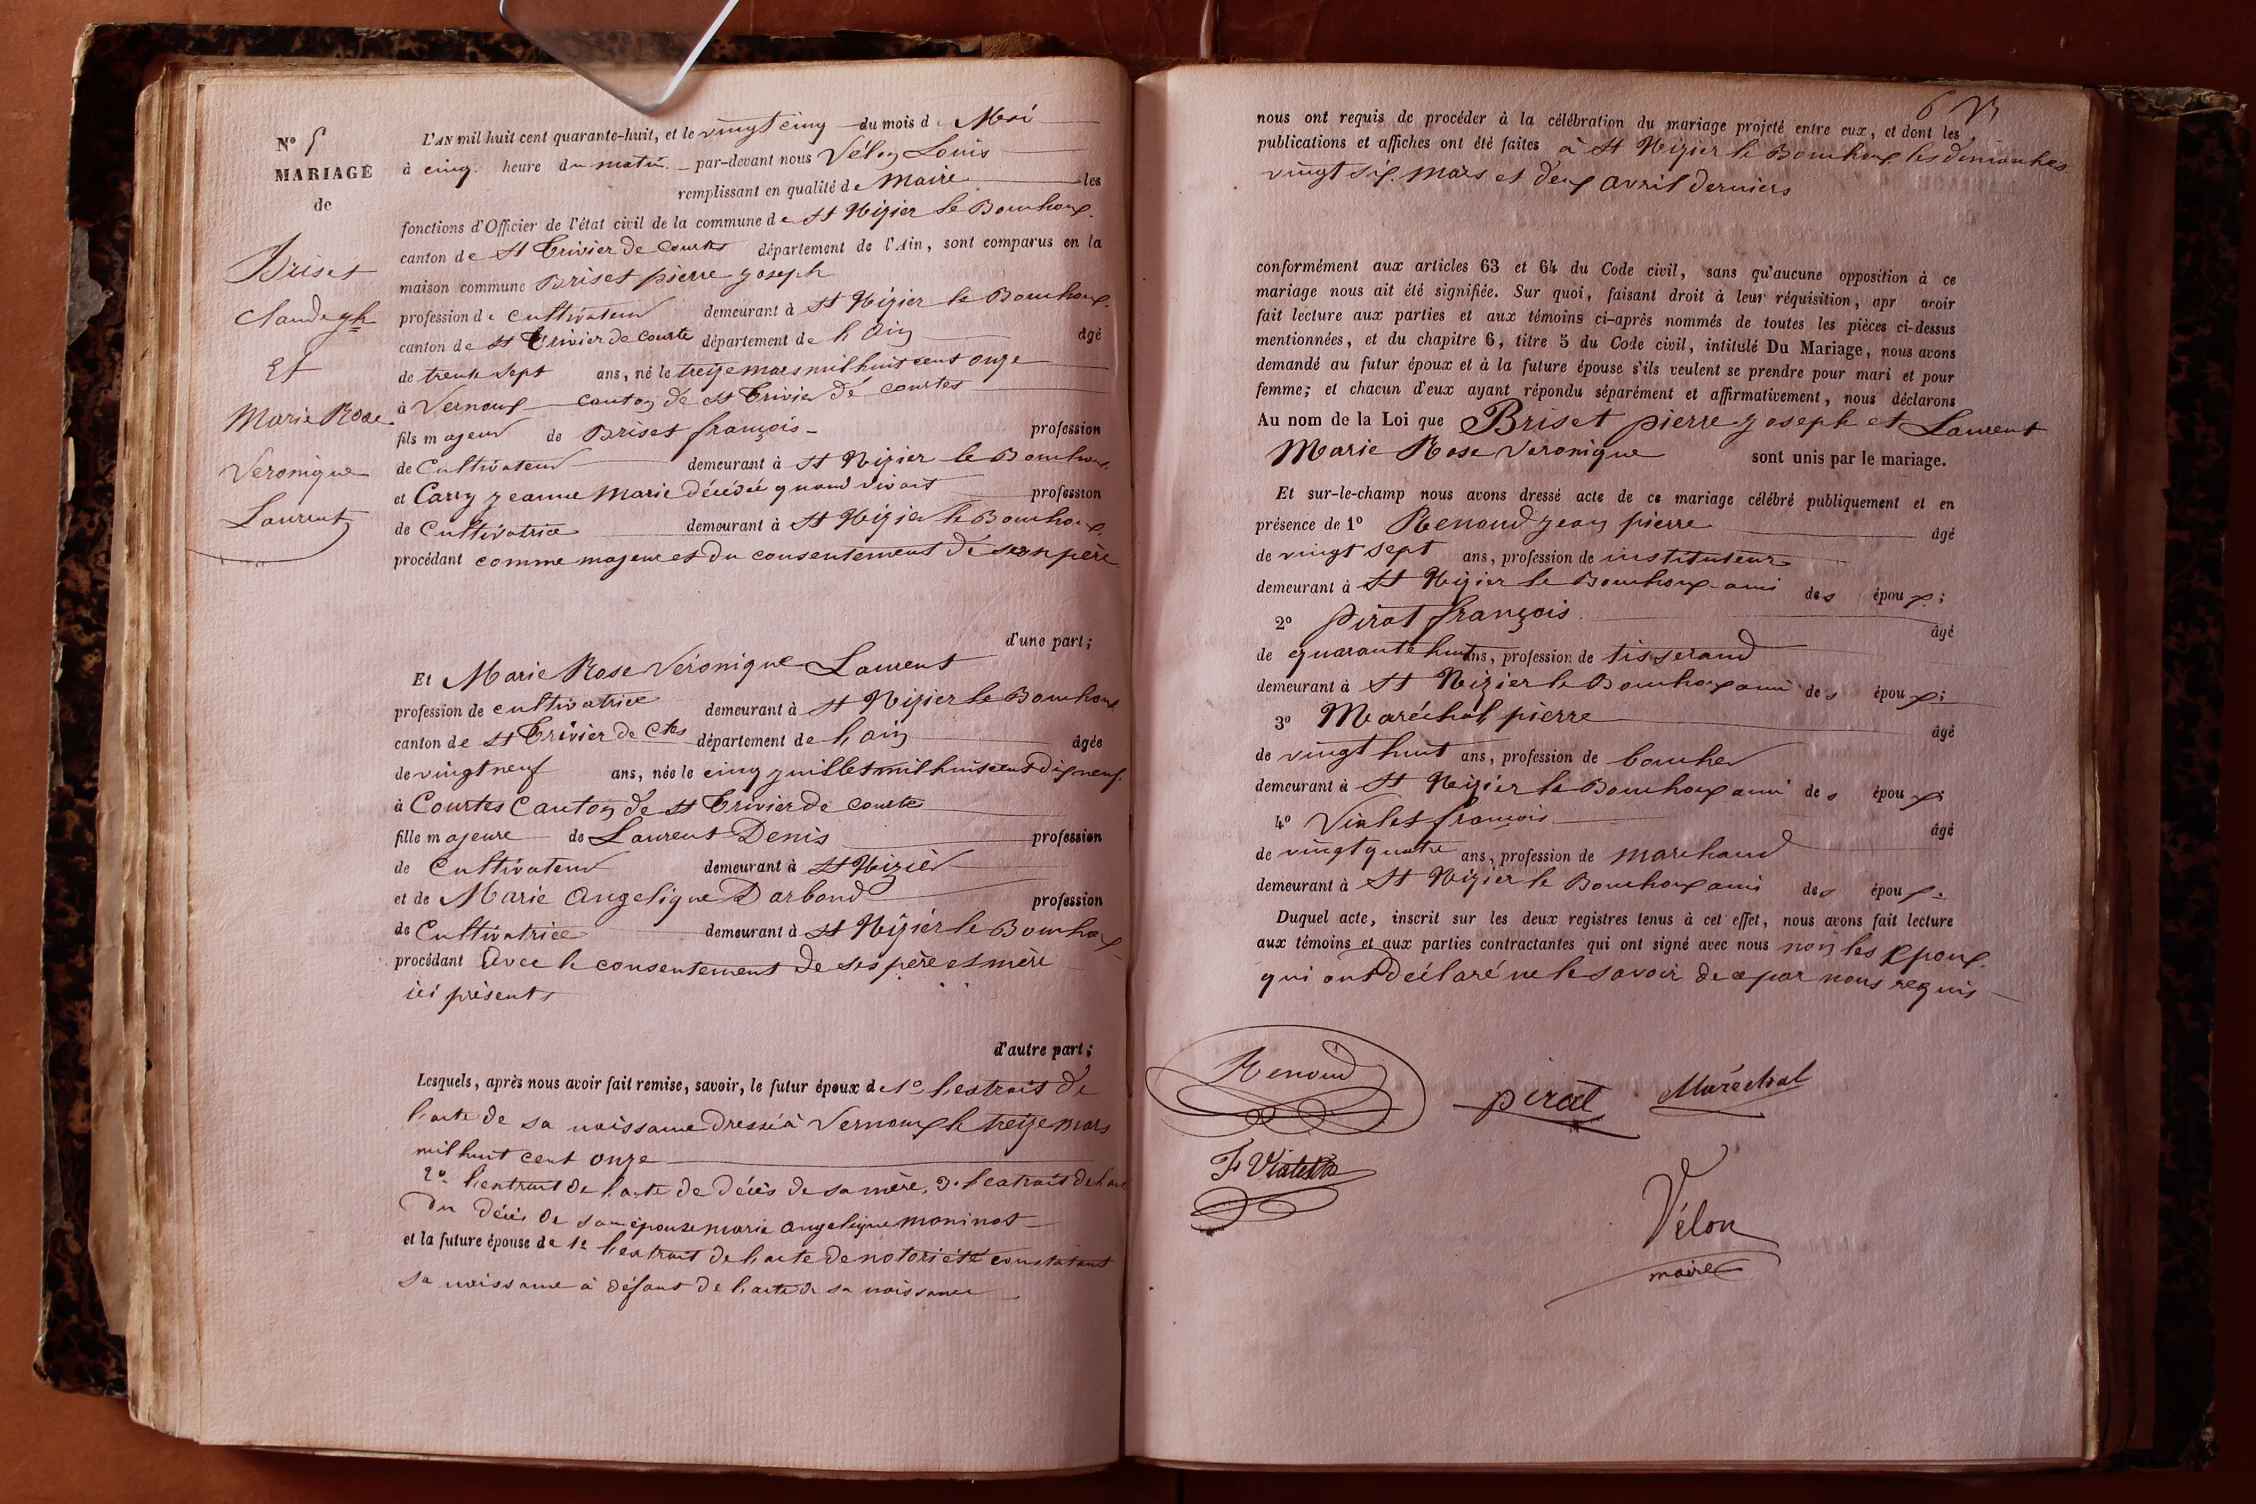 N° 5
MARIAGE
de
Briset
Claude jph
Et
Marie Rose
Veronique
Laurent
L'AN mil huit cent quarante-huit, et le vingt cinq du mois de Mai
à cinq heure du matin par-devant nous Vélon Louis
remplissant en qualité de Maire les
fonctions d'Officier de l'état civil de la commune de St Nizier le Bouchoux
canton de St Trivier de Courtes département de l'Ain, sont comparus en la
maison commune Briset pierre joseph
profession de cultivateur demeurant à St Nizier le Bouchoux
canton de St Trivier de Courte département de l'Ain âgé
de trente sept ans, né le treize mars mil huit cent onze
à Vernoux canton de St Trivier de Courtes
fils majeur de Briset françois profession
de Cultivateur demeurant à St Nizier le Bouchoux
et Carry jeanne Marie décédée quand vivait profession
de Cultivatrice demeurant à St Nizier le Bouchoux
procédant comme majeur et du consentement de son père
d'une part;
Et Marie Rose Véronique Laurent
profession de cultivatrice demeurant à St Nizier le Bouchoux
canton de St Trivier de Ctes département de l'Ain âgée
de vingt neuf ans, née le cinq juillet mil huit cent dix neuf
à Courtes Canton de St Trivier de Courtes
fille majeure de Laurent Denis profession
de Cultivateur demeurant à St Nizier
et de Marie Angelique Darband profession
de Cultivatrice demeurant à St Nizier le Bouchoux
procédant Avec le consentement de ses père et mère
ici présents
d'autre part;
Lesquels, après nous avoir fait remise, savoir, le futur époux de 1° l'extrait de
l'acte de sa naissance dressé à Vernoux le treize mars
mil huit cent onze
2° l'extrait de l'acte de décès de sa mère, 3° l'extrait de l'acte
du décès de son épouse marie angelique moninot
et la future épouse de 1° l'extrait de l'acte de notoriété constatant
sa naissance à défaut de l'acte de sa naissance
nous ont requis de procéder à la célébration du mariage projeté entre eux, et dont les
publications et affiches ont été faites à St Nizier le Bouchoux les dimanches
vingt six mars et deux avril derniers
conformément aux articles 63 et 64 du Code civil, sans qu'aucune opposition à ce
mariage nous ait été signifiée. Sur quoi, faisant droit à leur réquisition, apr avoir
fait lecture aux parties et aux témoins ci-après nommés de toutes les pièces ci-dessus
mentionnées, et du chapitre 6, titre 5 du Code civil, intitulé Du Mariage, nous avons
demandé au futur époux et à la future épouse s'ils veulent se prendre pour mari et pour
femme; et chacun d'eux ayant répondu séparément et affirmativement, nous déclarons
Au nom de la Loi que Briset pierre joseph et Laurent
Marie Rose Veronique sont unis par le mariage.
Et sur-le-champ nous avons dressé acte de ce mariage célébré publiquement et en
présence de 1° Renoud jean pierre âgé
de vingt sept ans, profession de instituteur
demeurant à St Nizier le Bouchoux ami des époux;
2° pirat françois âgé
de quarante huit ans, profession de tisserand
demeurant à St Nizier le Bouchoux ami des époux;
3° Maréchal pierre âgé
de vingt huit ans, profession de boucher
demeurant à St Nizier le Bouchoux ami des époux;
4° Vialet françois âgé
de vingt quatre ans, profession de marchand
demeurant à St Nizier le Bouchoux ami des époux.
Duquel acte, inscrit sur les deux registres tenus à cet effet, nous avons fait lecture
aux témoins et aux parties contractantes qui ont signé avec nous non les époux
qui ont déclaré ne le savoir de ce par nous requis
Renoud
pirat
Maréchal
F Vialet
Vélon
maire